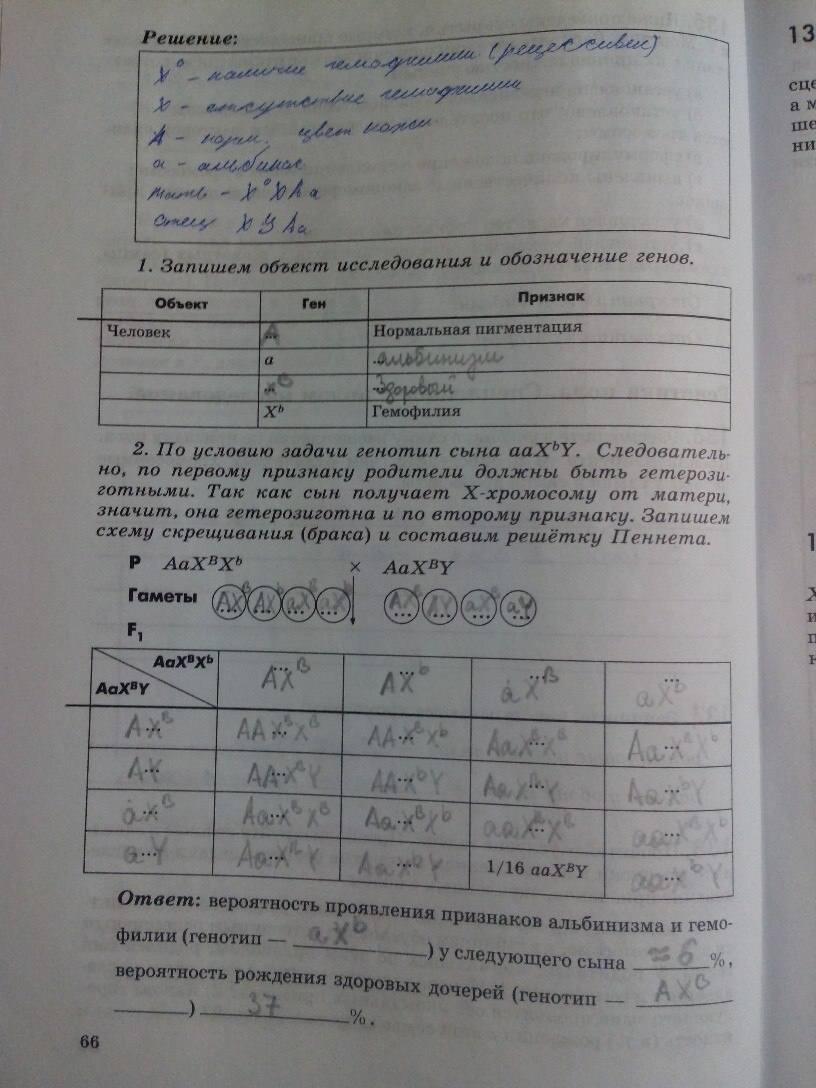 Решение:
X° - наличие гемофилии (рецессивен)
X - отсутствие гемофилии
A - норм. цвет кожи
a - альбинос
мать - X°XAa
отец XYAa
1. Запишем объект исследования и обозначение генов.
Объект Ген Признак
Человек A Нормальная пигментация
a альбинизм
xB Здоровый
Xb Гемофилия
2. По условию задачи генотип сына aaXbY. Следователь-
но, по первому признаку родители должны быть гетерози-
готными. Так как сын получает X-хромосому от матери,
значит, она гетерозиготна и по второму признаку. Запишем
схему скрещивания (брака) и составим решётку Пеннета.
P AaXBXb × AaXBY
Гаметы AXB AXb aXB aXb AXB AY aXB aY
F1
AaXBXb
AaXBY AXB AXb aXB aXb
AXB AAXBXB AAXBXb AaXBXB AaXBXb
AY AAXBY AAXbY AaXBY AaXbY
aXB AaXBXB AaXBXb aaXBXB aaXBXb
aY AaXBY AaXbY 1/16 aaXBY aaXbY
Ответ: вероятность проявления признаков альбинизма и гемо-
филии (генотип — aXb) у следующего сына ≈6%,
вероятность рождения здоровых дочерей (генотип — AXB
) 37%.
66
13
сце
а м
ше
ни